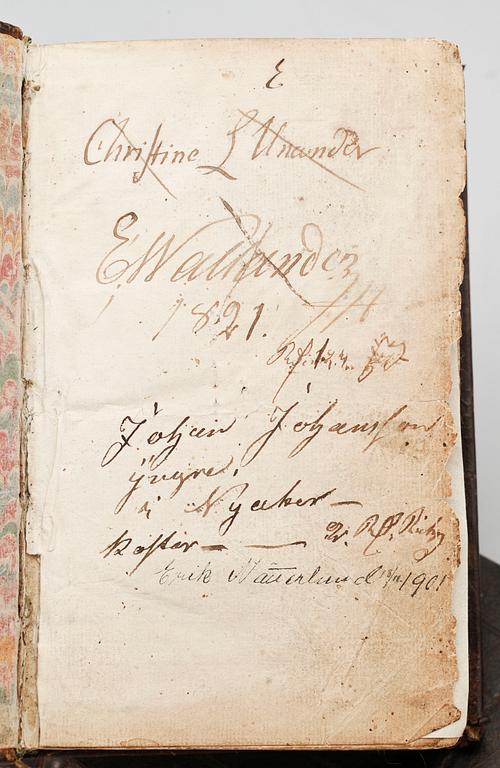 E
Christine L Unander
E. Wallunder
1821.
Johan Johansson
yngre.
i Nyåker
kostar — — 2. Rf.
Erik Näuerlund 1901